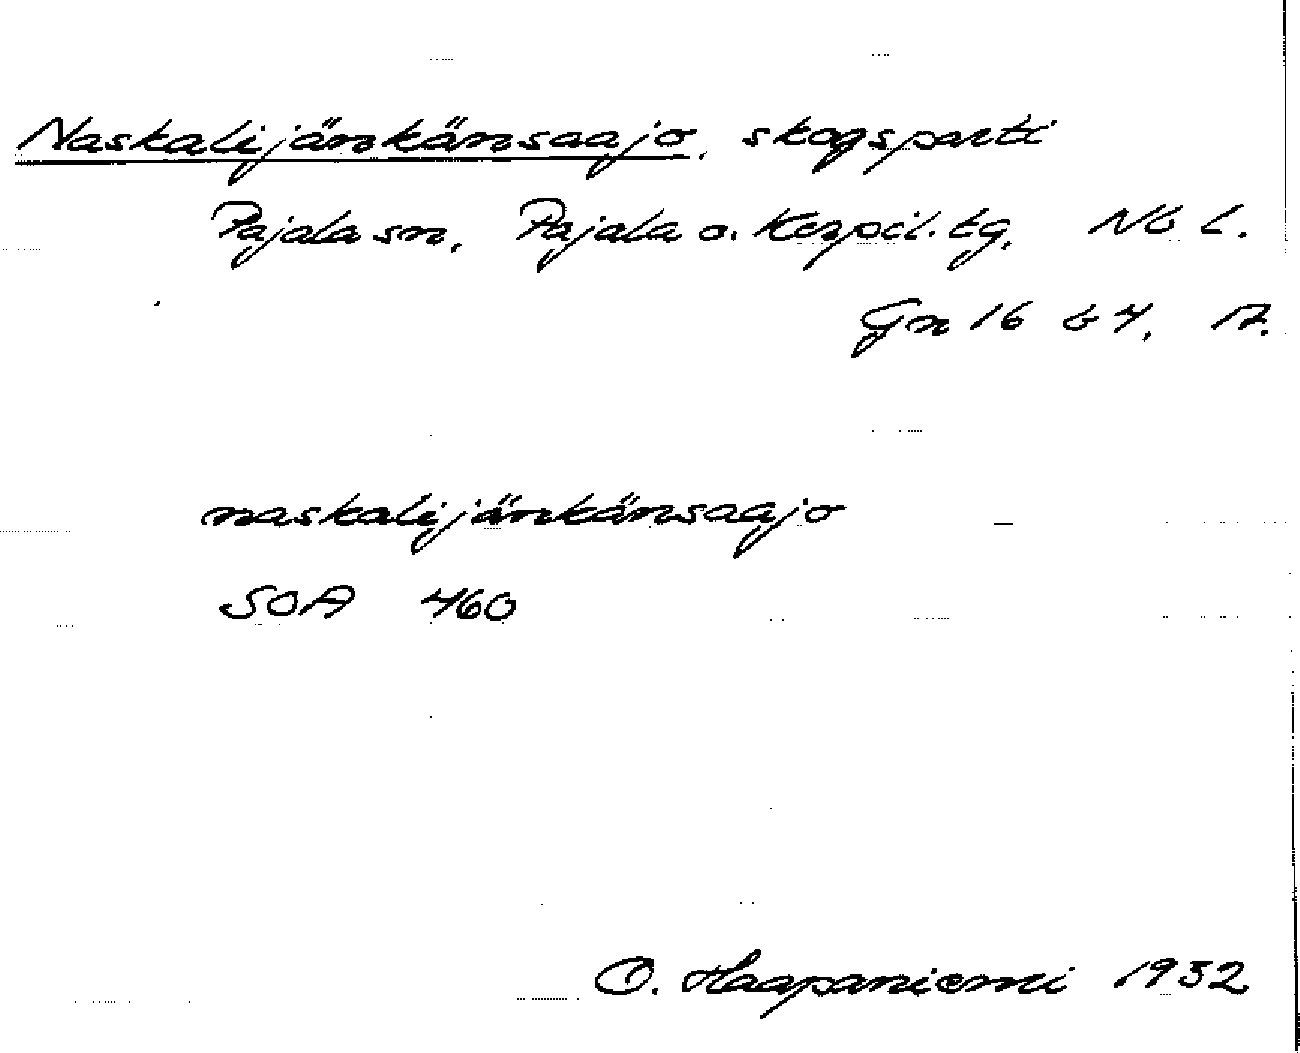 Naskalijänkänsaajo, skogsparti
Pajala sn, Pajala o. Kezpil. tg, Nb l.
Gn 16 b 4, 17.
naskalijänkänsaajo
SOA 460
O. Haapaniemi 1932